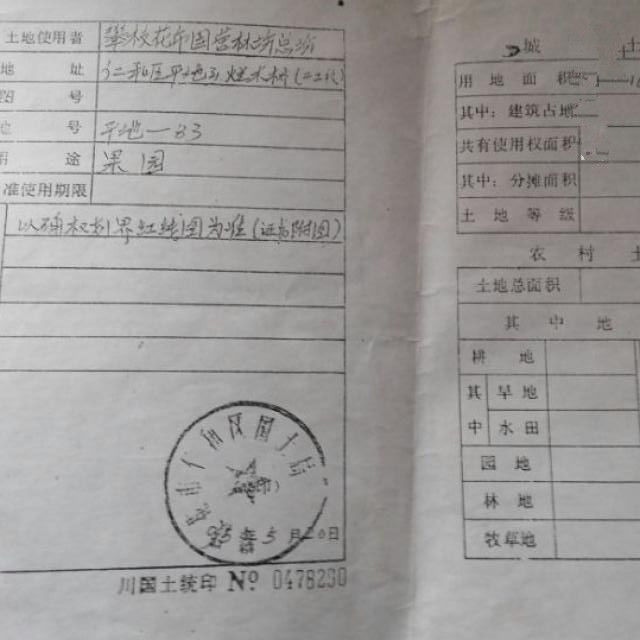 土地使用者 攀枝花市国营林场总场
地 址 仁和区平地
图 号
地 号 平地—83
用 途 果园
准使用期限
以确权划界红线图为准(证书附图)
月20日
川国土统印 Nº 0478230
城
用地面积
其中:建筑占地
共有使用权面积
其中:分摊面积
土地等级
农村土
土地总面积
其中地
耕地
其中 旱地
水田
园地
林地
牧草地